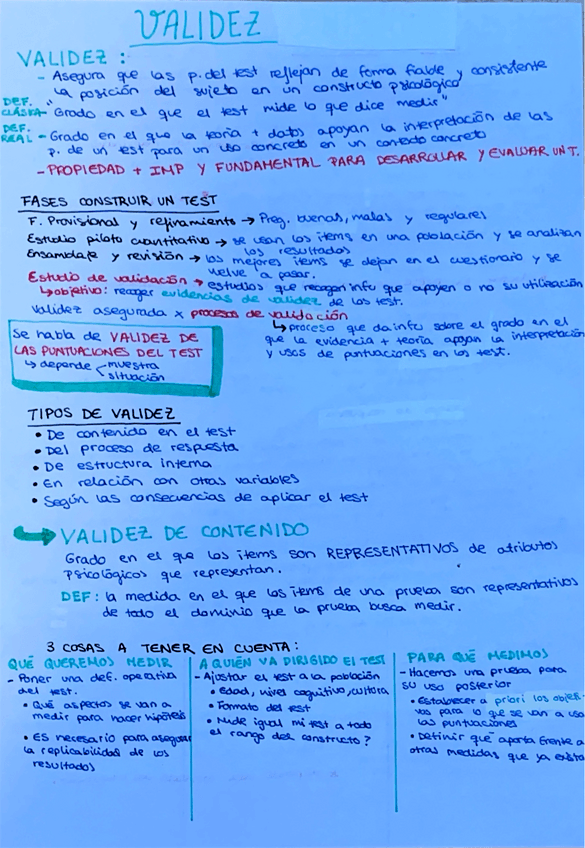 VALIDEZ
VALIDEZ :
- Asegura que las p. del test reflejan de forma fiable y consistente
la posición del sujeto en un constructo psicológico
DEF. CLÁSICA - "Grado en el que el test mide lo que dice medir"
DEF. REAL - Grado en el que la teoría + datos apoyan la interpretación de las
p. de un test para un uso concreto en un contexto concreto
- PROPIEDAD + IMP Y FUNDAMENTAL PARA DESARROLLAR Y EVALUAR UN T.
FASES CONSTRUIR UN TEST
F. Provisional y refinamiento → Preg. buenas, malas y regulares
Estudio piloto cuantitativo → se usan los items en una población y se analizan
los resultados
Ensamblaje y revisión → los mejores items se dejan en el cuestionario y se
vuelve a pasar.
Estudio de validación → estudios que recogan info que apoyen o no su utilización
↳ objetivo: recoger evidencias de validez de los test.
Validez asegurada x procesos de validación
↳ proceso que da info sobre el grado en el
que la evidencia + teoría apoyan la interpretación
y usos de puntuaciones en los test.
Se habla de VALIDEZ DE
LAS PUNTUACIONES DEL TEST
↳ depende < muestra
situación
TIPOS DE VALIDEZ
• De contenido en el test
• Del proceso de respuesta
• De estructura interna
• En relación con otras variables
• Según las consecuencias de aplicar el test
→ VALIDEZ DE CONTENIDO
Grado en el que los items son REPRESENTATIVOS de atributos
psicológicos que representan.
DEF: la medida en el que los items de una prueba son representativos
de todo el dominio que la prueba busca medir.
3 COSAS A TENER EN CUENTA:
QUÉ QUEREMOS MEDIR
- Poner una def. operativa
del test.
• Qué aspectos se van a
medir para hacer hipótesis
• Es necesario para asegurar
la replicabilidad de los
resultados
A QUIÉN VA DIRIGIDO EL TEST
- Ajustar el test a la población
• edad, nivel cognitivo, cultura
• Formato del test
• Mide igual mi test a todo
el rango del constructo?
PARA QUÉ MEDIMOS
- Hacemos una prueba para
su uso posterior
• Establecer a priori los objeti-
vos para lo que se van a usa
las puntuaciones
• Definir qué aporta frente a
otras medidas que ya exista